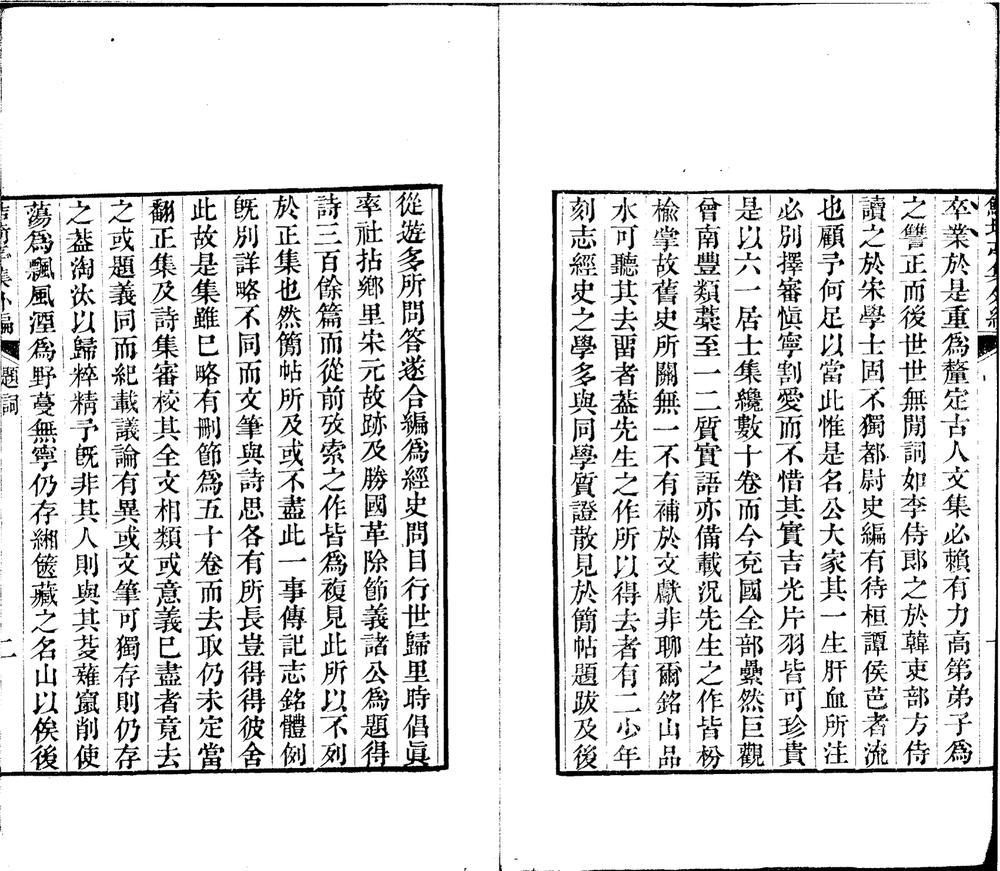 卒業於是重爲釐定古人文集必賴有力高第弟子爲
之讐正而後世世無閒詞如李侍郎之於韓吏部方侍
讀之於宋學士固不獨都尉史編有待桓譚侯芭者流
也顧予何足以當此惟是名公大家其一生肝血所注
必別擇審愼寧割愛而不惜其實吉光片羽皆可珍貴
是以六一居士集纔數十卷而今兗國全部纍然巨觀
曾南豐類藁至一二質實語亦備載況先生之作皆枌
楡掌故舊史所關無一不有補於文獻非聊爾銘山品
水可聽其去畱者葢先生之作所以得去者有二少年
刻志經史之學多與同學質證散見於簡帖題跋及後
從遊多所問答遂合編爲經史問目行世歸里時倡眞
率社拈鄉里宋元故跡及勝國革除節義諸公爲題得
詩三百餘篇而從前攷索之作皆爲複見此所以不列
於正集也然簡帖所及或不盡此一事傳記志銘體例
旣別詳略不同而文筆與詩思各有所長豈得得彼舍
此故是集雖已略有刪節爲五十卷而去取仍未定當
翻正集及詩集審校其全文相類或意義已盡者竟去
之或題義同而紀載議論有異或文筆可獨存則仍存
之葢淘汰以歸粹精予旣非其人則與其芟薙竄削使
蕩爲飄風湮爲野蔓無寧仍存緗篋藏之名山以俟後
集外編
題詞
二